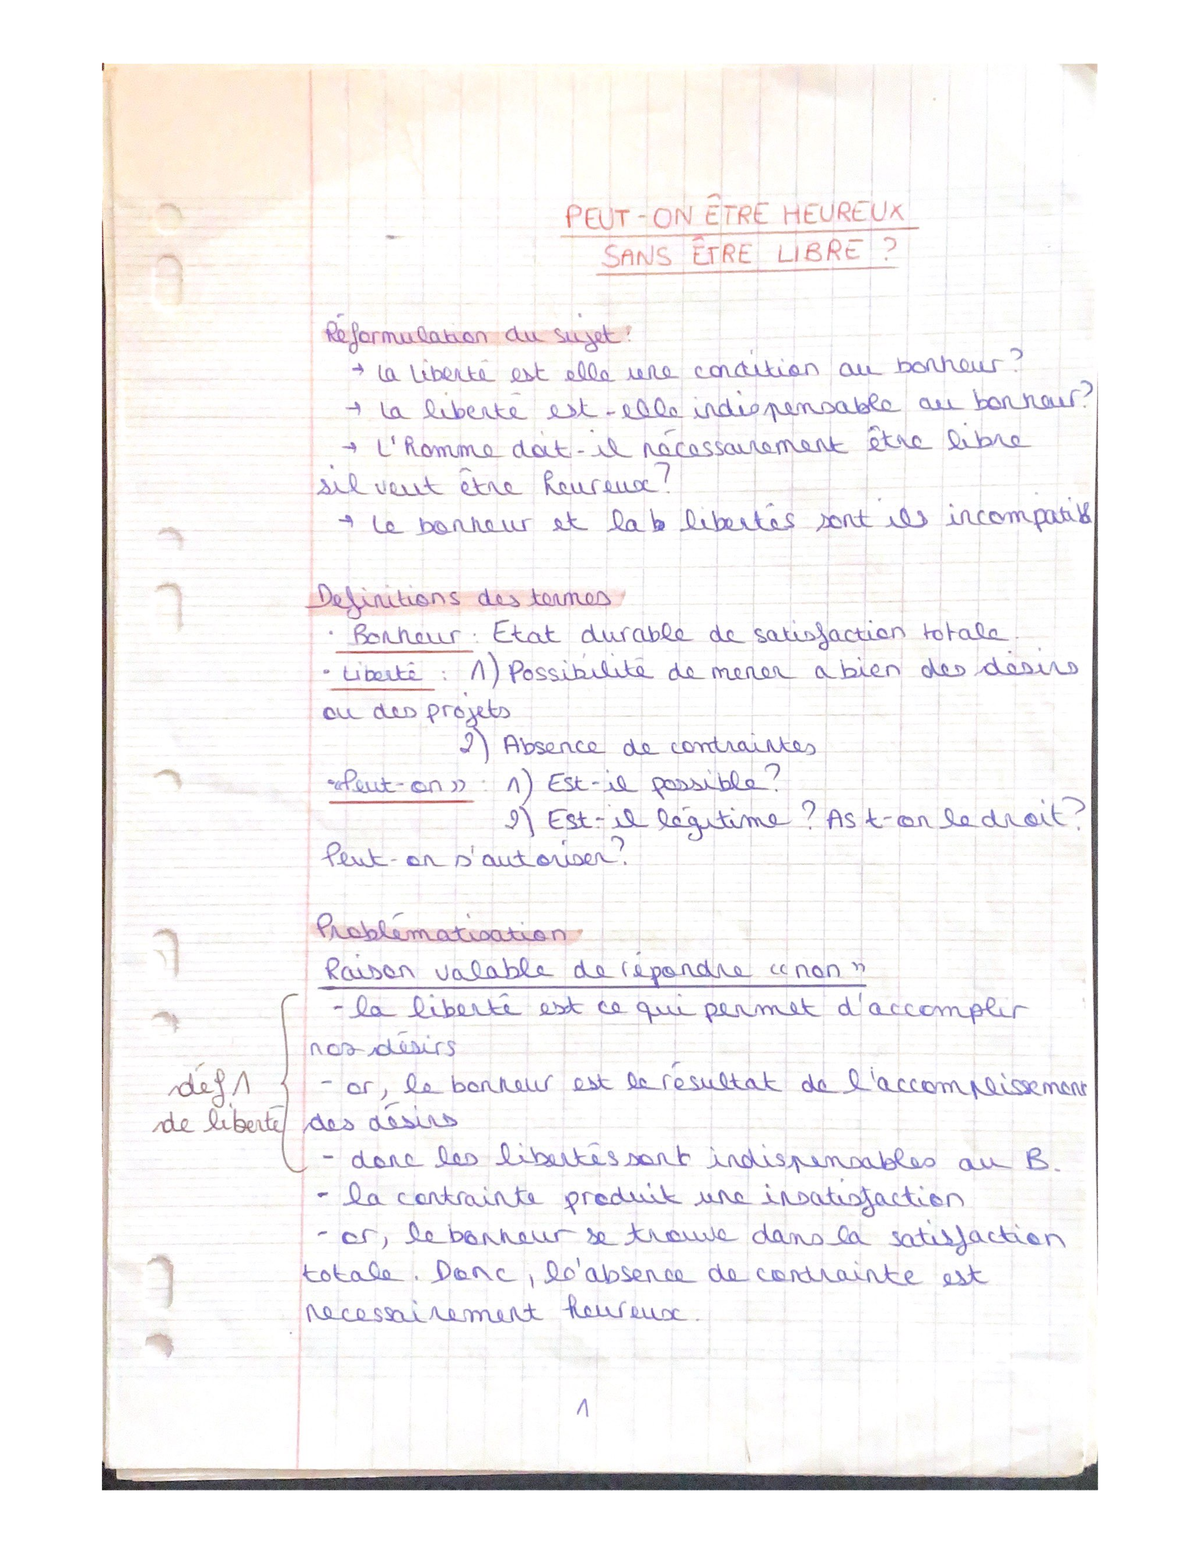 PEUT-ON ÊTRE HEUREUX
SANS ÊTRE LIBRE ?
Réformulation du sujet :
→ La liberté est elle une condition au bonheur ?
→ La liberté est-elle indispensable au bonheur?
→ L'Homme doit-il nécessairement être libre
sil veut être heureux ?
→ Le bonheur et la libertés sont ils incompatible
Definitions des termes
· Bonheur : Etat durable de satisfaction totale.
· Liberté : 1) Possibilité de mener a bien des désirs
ou des projets
2) Absence de contraintes
"Peut-on" : 1) Est-il possible ?
2) Est-il légitime ? As t-on le droit ?
Peut-on s'autoriser ?
Problématisation
Raison valable de répondre "non"
- la liberté est ce qui permet d'accomplir
nos désirs
- or, le bonheur est le résultat de l'accomplissement
def 1
de liberté des désirs
- donc les libertés sont indispensables au B.
- la contrainte produit une insatisfaction
- or, le bonheur se trouve dans la satisfaction
totale. Donc, l'absence de contrainte est
necessairement heureux.
1